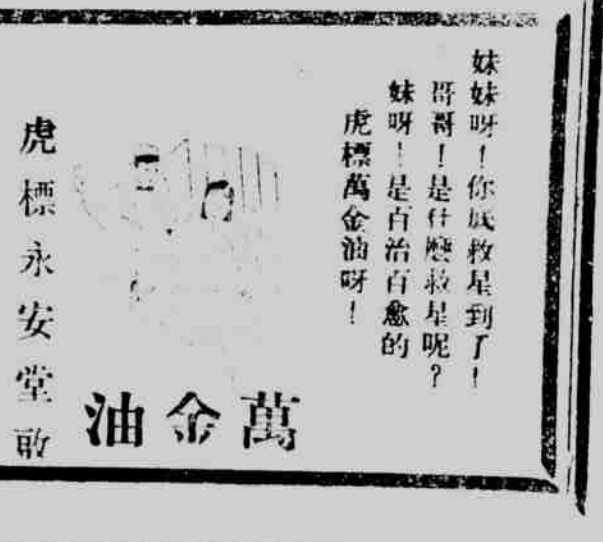 妹妹呀！你底救星到了！
哥哥！是什麼救星呢？
妹呀！是百治百愈的
虎標萬金油呀！
油金萬
虎標永安堂敬